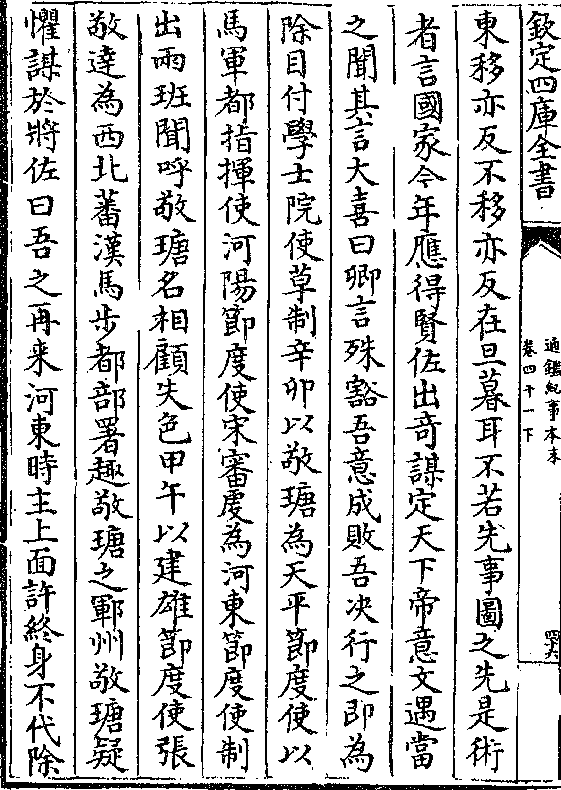 欽定四庫全書
通鑑紀事本末
卷四十一下
東移亦反不移亦反在旦暮耳不若先事圖之先是術
者言國家今年應得賢佐出奇謀定天下帝意文遇當
之聞其言大喜曰卿言殊豁吾意成敗吾決行之即為
除目付學士院使草制辛卯以敬瑭為天平節度使以
馬軍都指揮使河陽節度使宋審虔為河東節度使制
出兩班聞呼敬瑭名相顧失色甲午以建雄節度使張
敬達為西北蕃漢馬步都部署趣敬瑭之鄆州敬瑭疑
懼謀於將佐曰吾之再来河東時主上面許終身不代除